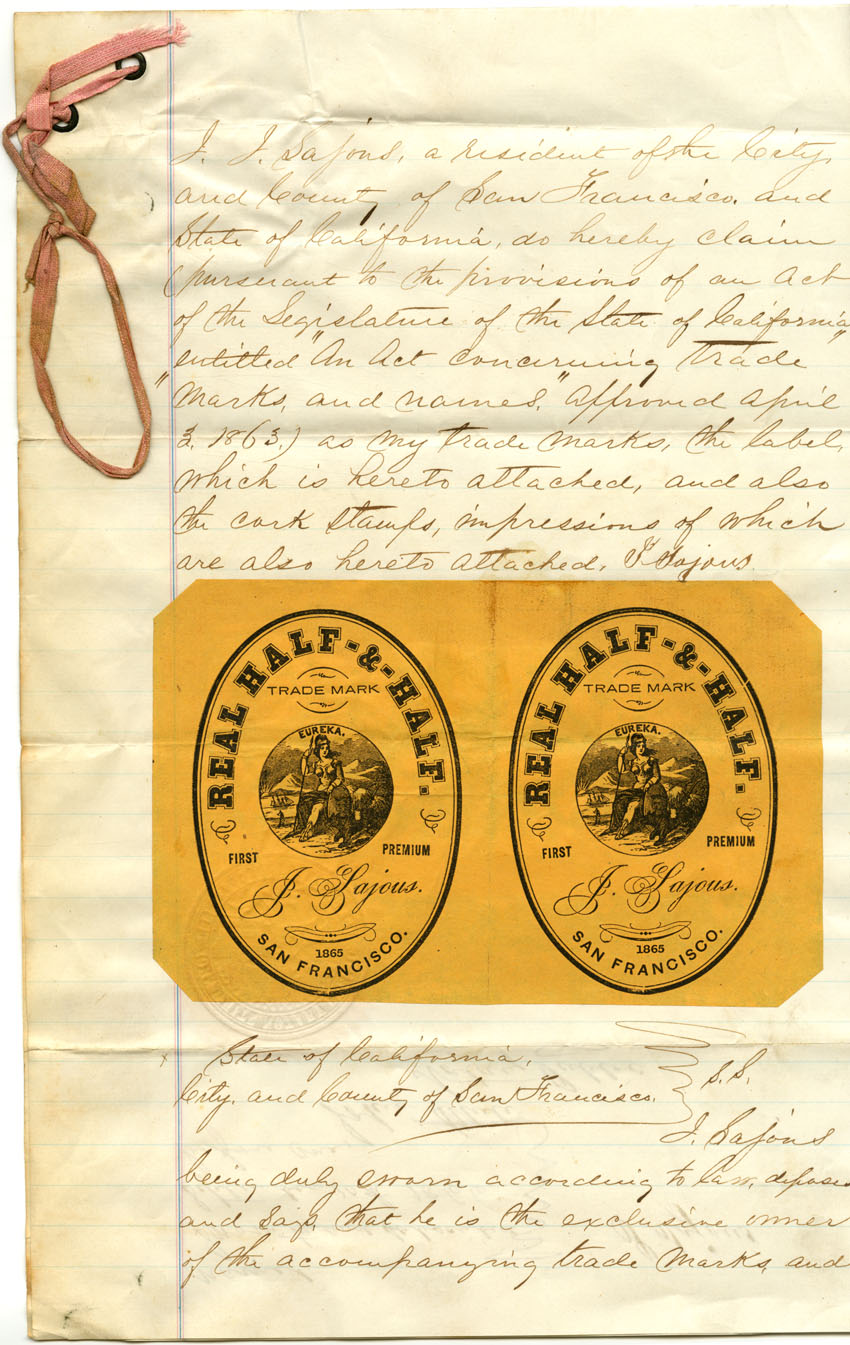 I. J. Sajous, a resident of the City,
and County of San Francisco. and
State of California, do hereby claim
(pursuant to the provisions of an Act
of the Legislature of the State of California,
entitled "An Act concerning trade
"Marks, and names," approved April
3. 1863.) as my trade marks, the label,
which is hereto attached, and also
the cork stamps, impressions of which
are also hereto attached. J Sajous
REAL HALF-&-HALF.
TRADE MARK
EUREKA.
FIRST PREMIUM
J. Sajous.
1865
SAN FRANCISCO.
REAL HALF-&-HALF.
TRADE MARK
EUREKA.
FIRST PREMIUM
J. Sajous.
1865
SAN FRANCISCO.
State of California,
City, and County of San Francisco. } S.S.
J. Sajous
being duly sworn according to law, deposes
and says, that he is the exclusive owner
of the accompanying trade marks, and